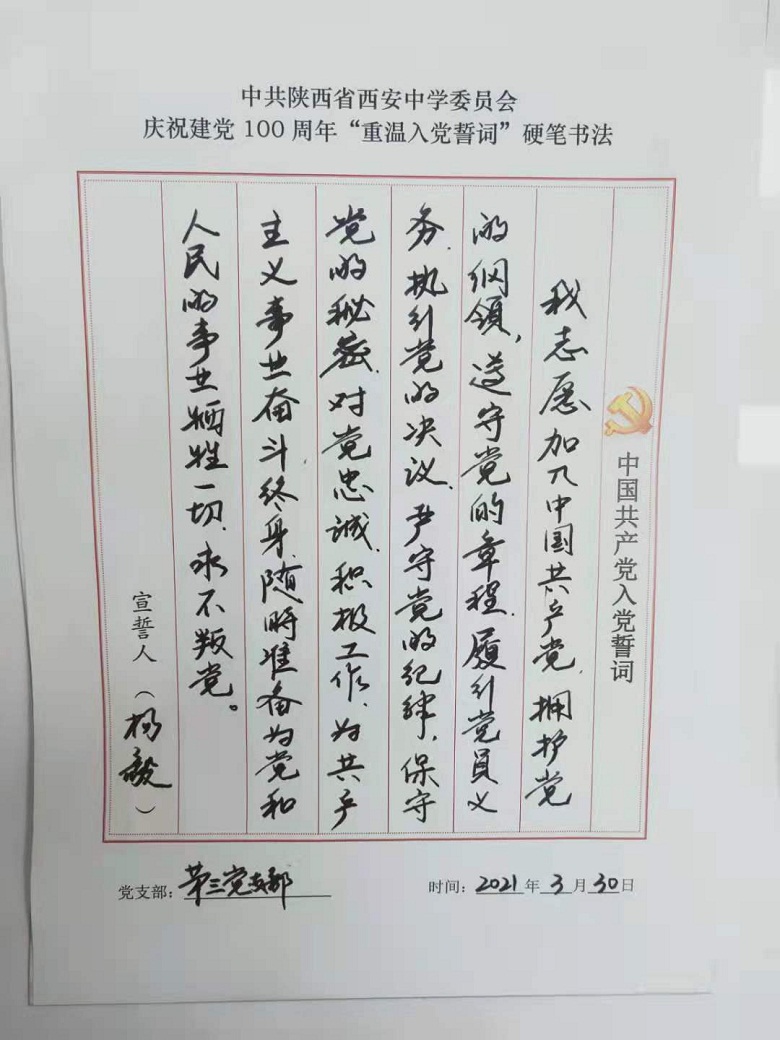 中共陕西省西安中学委员会
庆祝建党 100 周年“重温入党誓词”硬笔书法
中国共产党入党誓词
我志愿加入中国共产党,拥护党
的纲领,遵守党的章程,履行党员义
务,执行党的决议,严守党的纪律,保守
党的秘密,对党忠诚,积极工作,为共产
主义事业奋斗终身,随时准备为党和
人民的事业牺牲一切,永不叛党。
宣誓人(杨毅)
党支部:第三党支部
时间:2021年3月30日